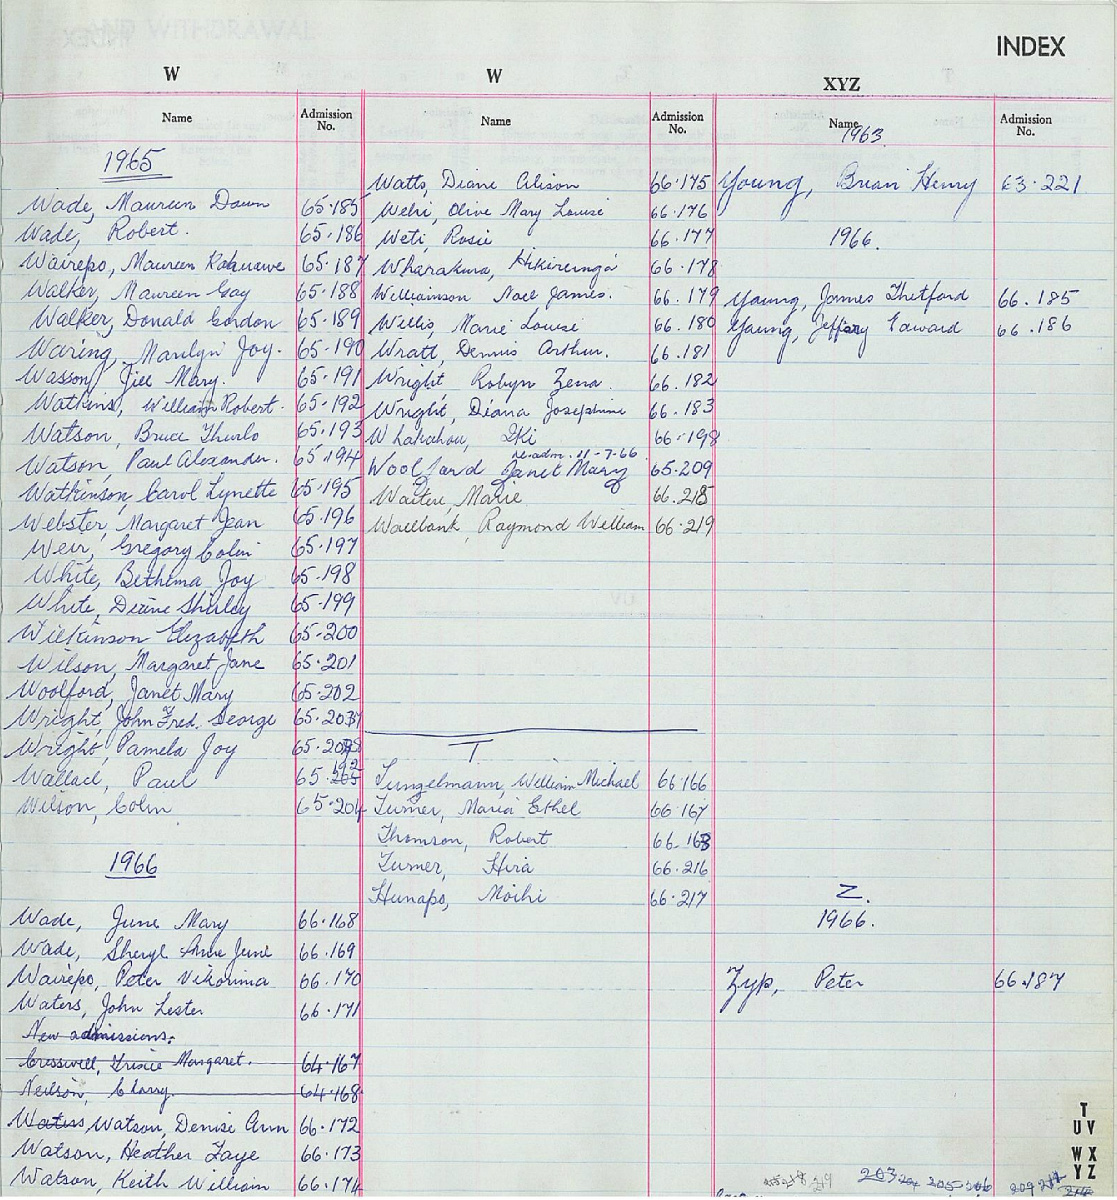 INDEX
W
Name
Admission No.
1965
Wade, Maureen Dawn 65.185
Wade, Robert. 65.186
Wairepo, Maureen 65.187
Walker, Maureen Gay 65.188
Walker, Donald Gordon 65.189
Waring, Marilyn Joy. 65.190
Wasson, Jill Mary. 65.191
Watkins, William Robert. 65.192
Watson, Bruce Thurlo 65.193
Watson, Paul Alexander. 65.194
Watkinson, Carol Lynette 65.195
Webster, Margaret Jean 65.196
Weir, Gregory Colin 65.197
White, Bethina Joy 65.198
White, Diane Shirley 65.199
Wilkinson Elizabeth 65.200
Wilson, Margaret Jane 65.201
Woolford, Janet Mary 65.202
Wright, John Fred. George
Wright, Pamela Joy
Wallace, Paul
Wilson, Colin 65.204
1966
Wade, June Mary 66.168
Wade, Sheryl Anne June 66.169
Wairepo, Peter Vikorima 66.170
Waters, John Lester 66.171
New admissions.
Cresswell, Trisie Margaret. 64.167
Neilson, Cherry. 64.168
Waters Watson, Denise Ann 66.172
Watson, Heather Faye 66.173
Watson, Keith William 66.174
W
Name
Admission No.
Watts, Diane Alison 66.175
Wehi, Olive Mary Louise 66.176
Weti, Rosie 66.177
Wharakura, Hikirunga 66.178
Williamson Noel James. 66.179
Willis, Marie Louise 66.180
Wratt, Dennis Arthur. 66.181
Wright Robyn Zena 66.182
Wright, Diana Josephine 66.183
Whakahou, Iki 66.198
re-adm. 11-7-66
Woolford Janet Mary 65.209
Waitere, Marie 66.218
Wailbank, Raymond William 66.219
T
Tungelmann, William Michael 66.166
Turner, Maria Ethel 66.167
Thomson, Robert 66.163
Turner, Hira 66.216
Hunapo, Moihi 66.217
XYZ
Name
Admission No.
1963
Young, Brian Henry 63.221
1966.
Young, James Thetford 66.185
Young, Jeffary Edward 66.186
Z.
1966.
Zyp, Peter 66.187
T
U V
W X
Y Z
203